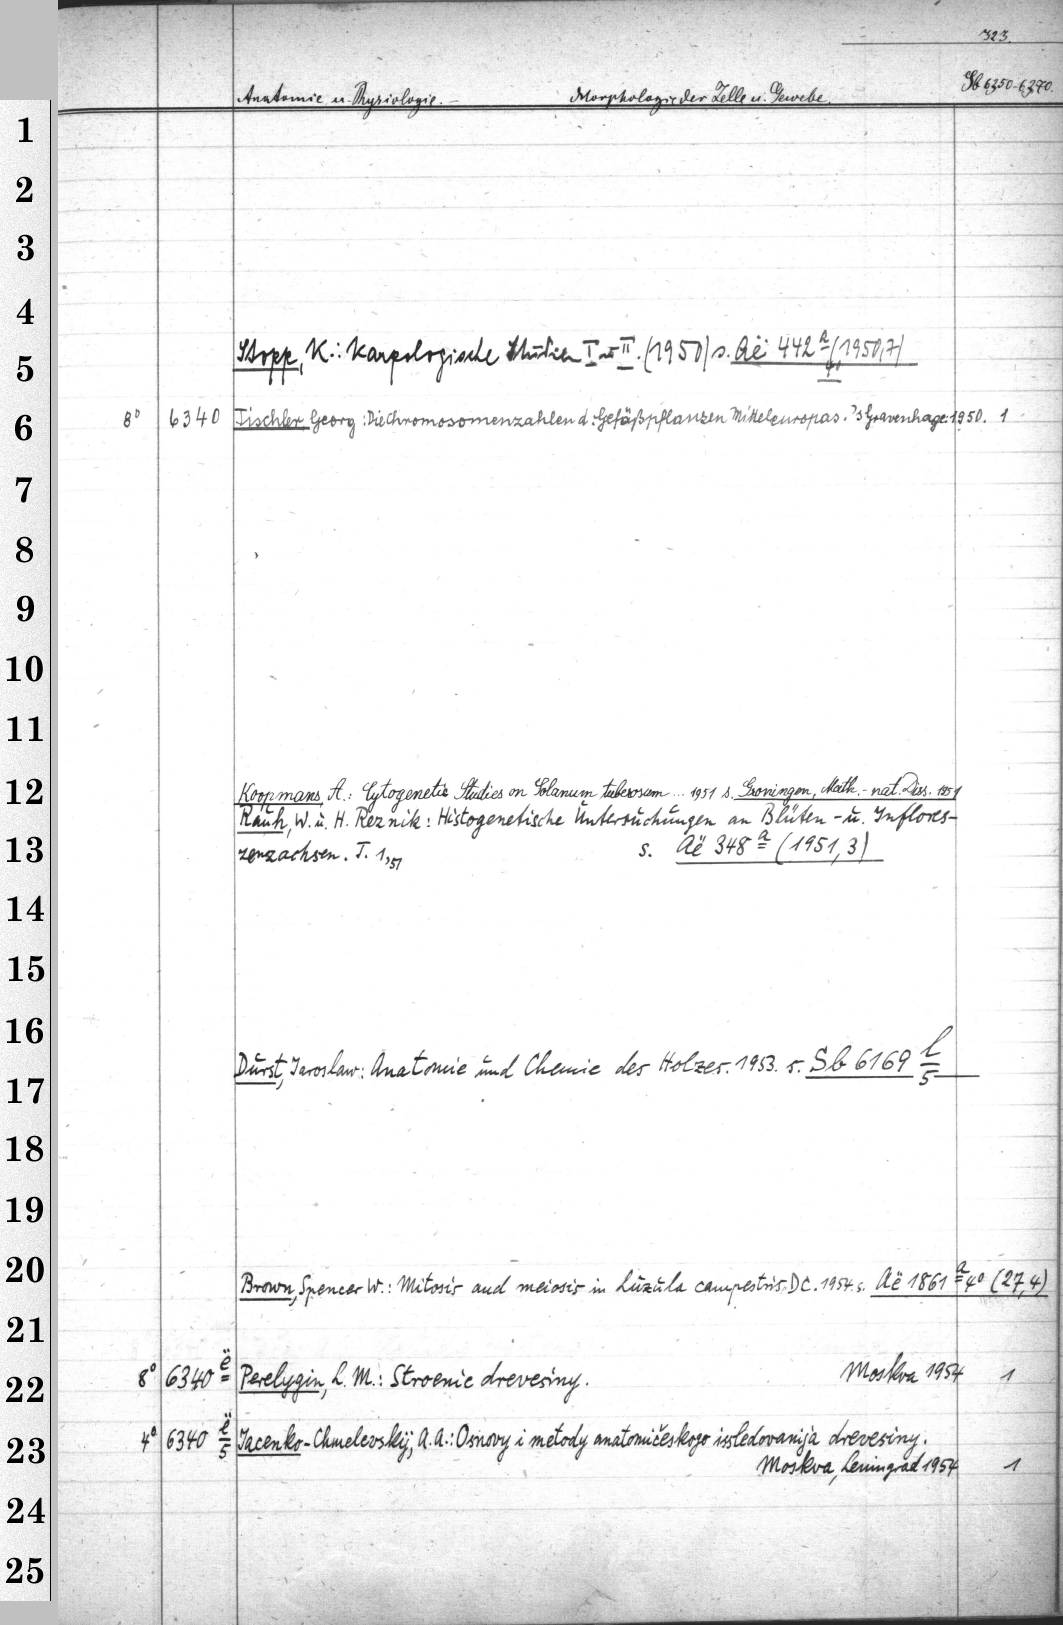 323.
Anatomie u. Physiologie. — Morphologie der Zelle u. Gewebe. Sb 6350-6370.
1
2
3
4
Stopp, K.: Karpologische Studien I u II. (1950) s. Aë 442 a/4 (1950,7)
5
6 8° 6340 Tischler Georg: Die Chromosomenzahlen d. Gefäßpflanzen Mitteleuropas. 's Gravenhage: 1950. 1
7
8
9
10
11
12 Koopmans, A.: Cytogenetic Studies on Solanum tuberosum ... 1951 s. Groningen, Math.-nat. Diss. 1951
Rauh, W. u. H. Reznik: Histogenetische Untersuchungen an Blüten- u. Inflores-
13 zenzachsen. T. 1, 51 s. Aë 348 a (1951,3)
14
15
16
Dürst, Jaroslaw: Anatomie und Chemie des Holzes. 1953. s. Sb 6169 l/5
17
18
19
20 Brown, Spencer W.: Mitosis and meiosis in Luzula campestris DC. 1954. s. Aë 1861 a 4° (27,4)
21
22 8° 6340 ë Perelygin, L. M.: Stroenie drevesiny. Moskva 1954 1
23 4° 6340 ë/5 Jacenko-Chmelevskij, A. A.: Osnovy i metody anatomičeskogo issledovanija drevesiny.
Moskva, Leningrad 1954 1
24
25